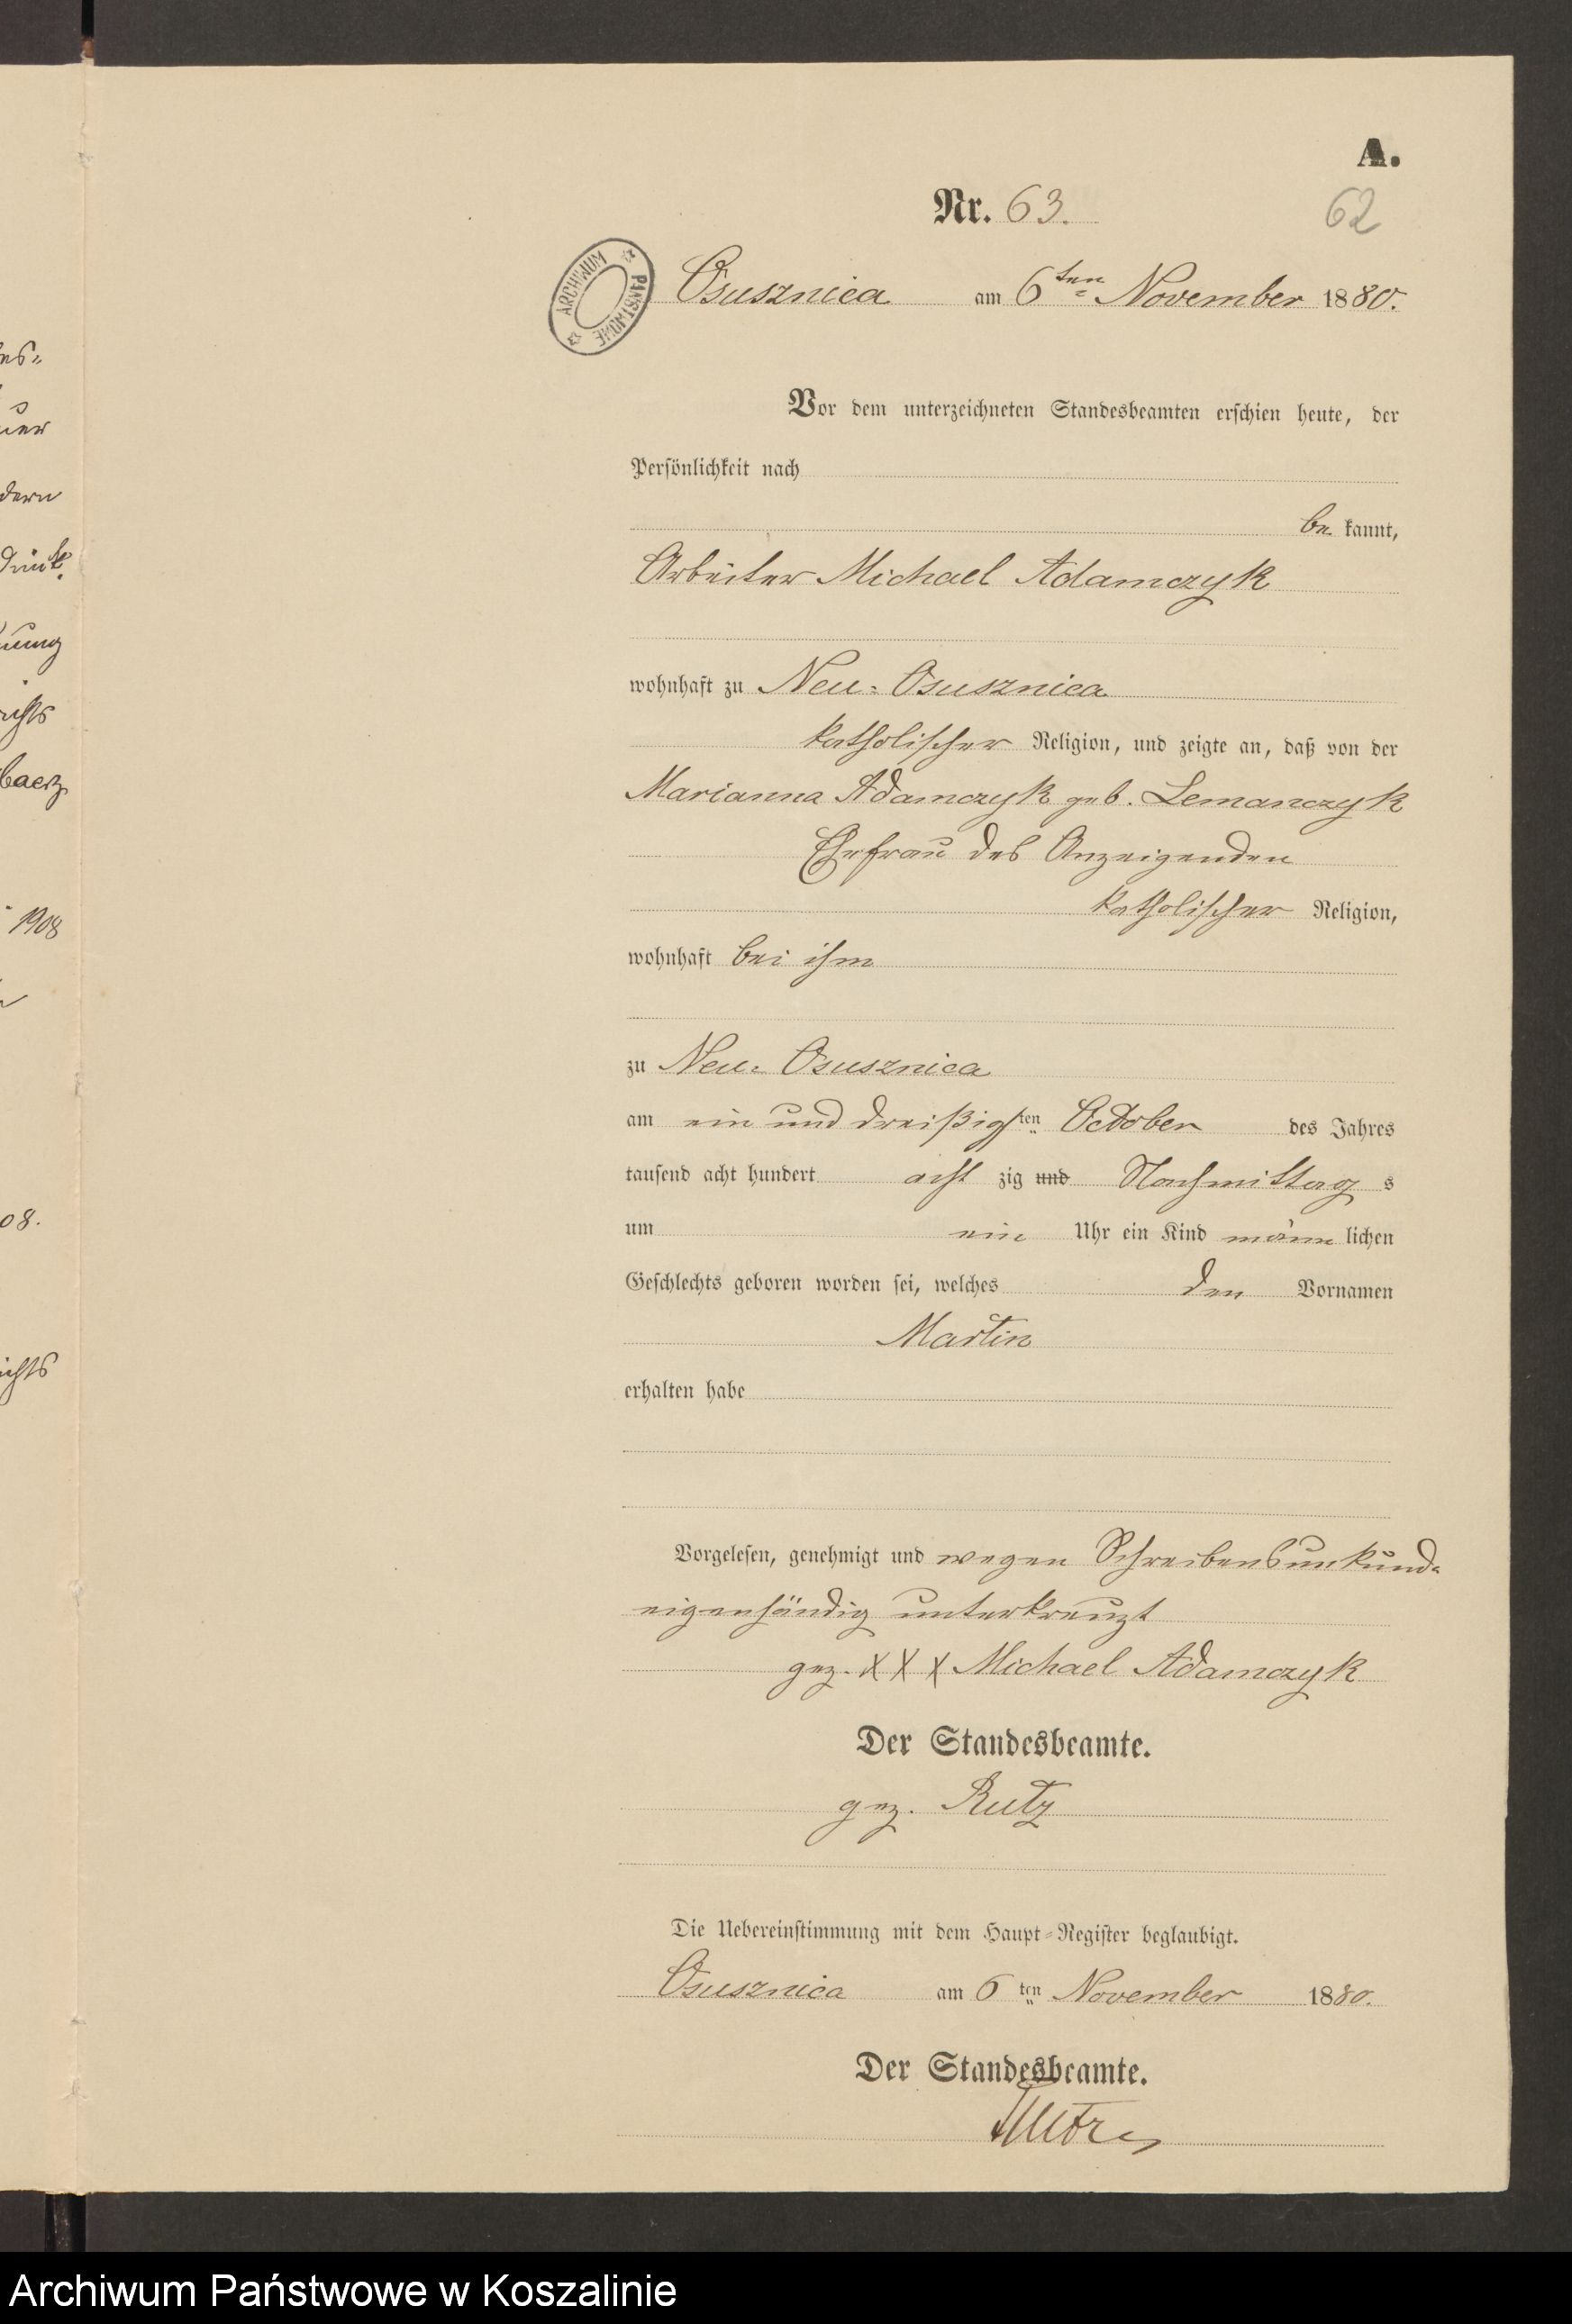 A.
Nr. 63.
62
ARCHIWUM PAŃSTWOWE
Osusznica am 6ten November 1880.
Vor dem unterzeichneten Standesbeamten erschien heute, der
Persönlichkeit nach
be kannt,
Arbeiter Michael Adamczyk
wohnhaft zu Neu-Osusznica
katholischer Religion, und zeigte an, daß von der
Marianna Adamczyk geb. Lemanczyk
Ehefrau des Anzeigenden
katholischer Religion,
wohnhaft bei ihm
zu Neu-Osusznica
am ein und dreißigsten October des Jahres
tausend acht hundert acht zig und Nachmittag s
um ein Uhr ein Kind männ lichen
Geschlechts geboren worden sei, welches den Vornamen
Martin
erhalten habe
Vorgelesen, genehmigt und wegen Schreibensunkund-
eigenhändig unterkreuzt
gez. X X X Michael Adamczyk
Der Standesbeamte.
gez. Rutz
Die Uebereinstimmung mit dem Haupt-Register beglaubigt.
Osusznica am 6 ten November 1880.
Der Standesbeamte.
Rutz
1908
08.
Archiwum Państwowe w Koszalinie